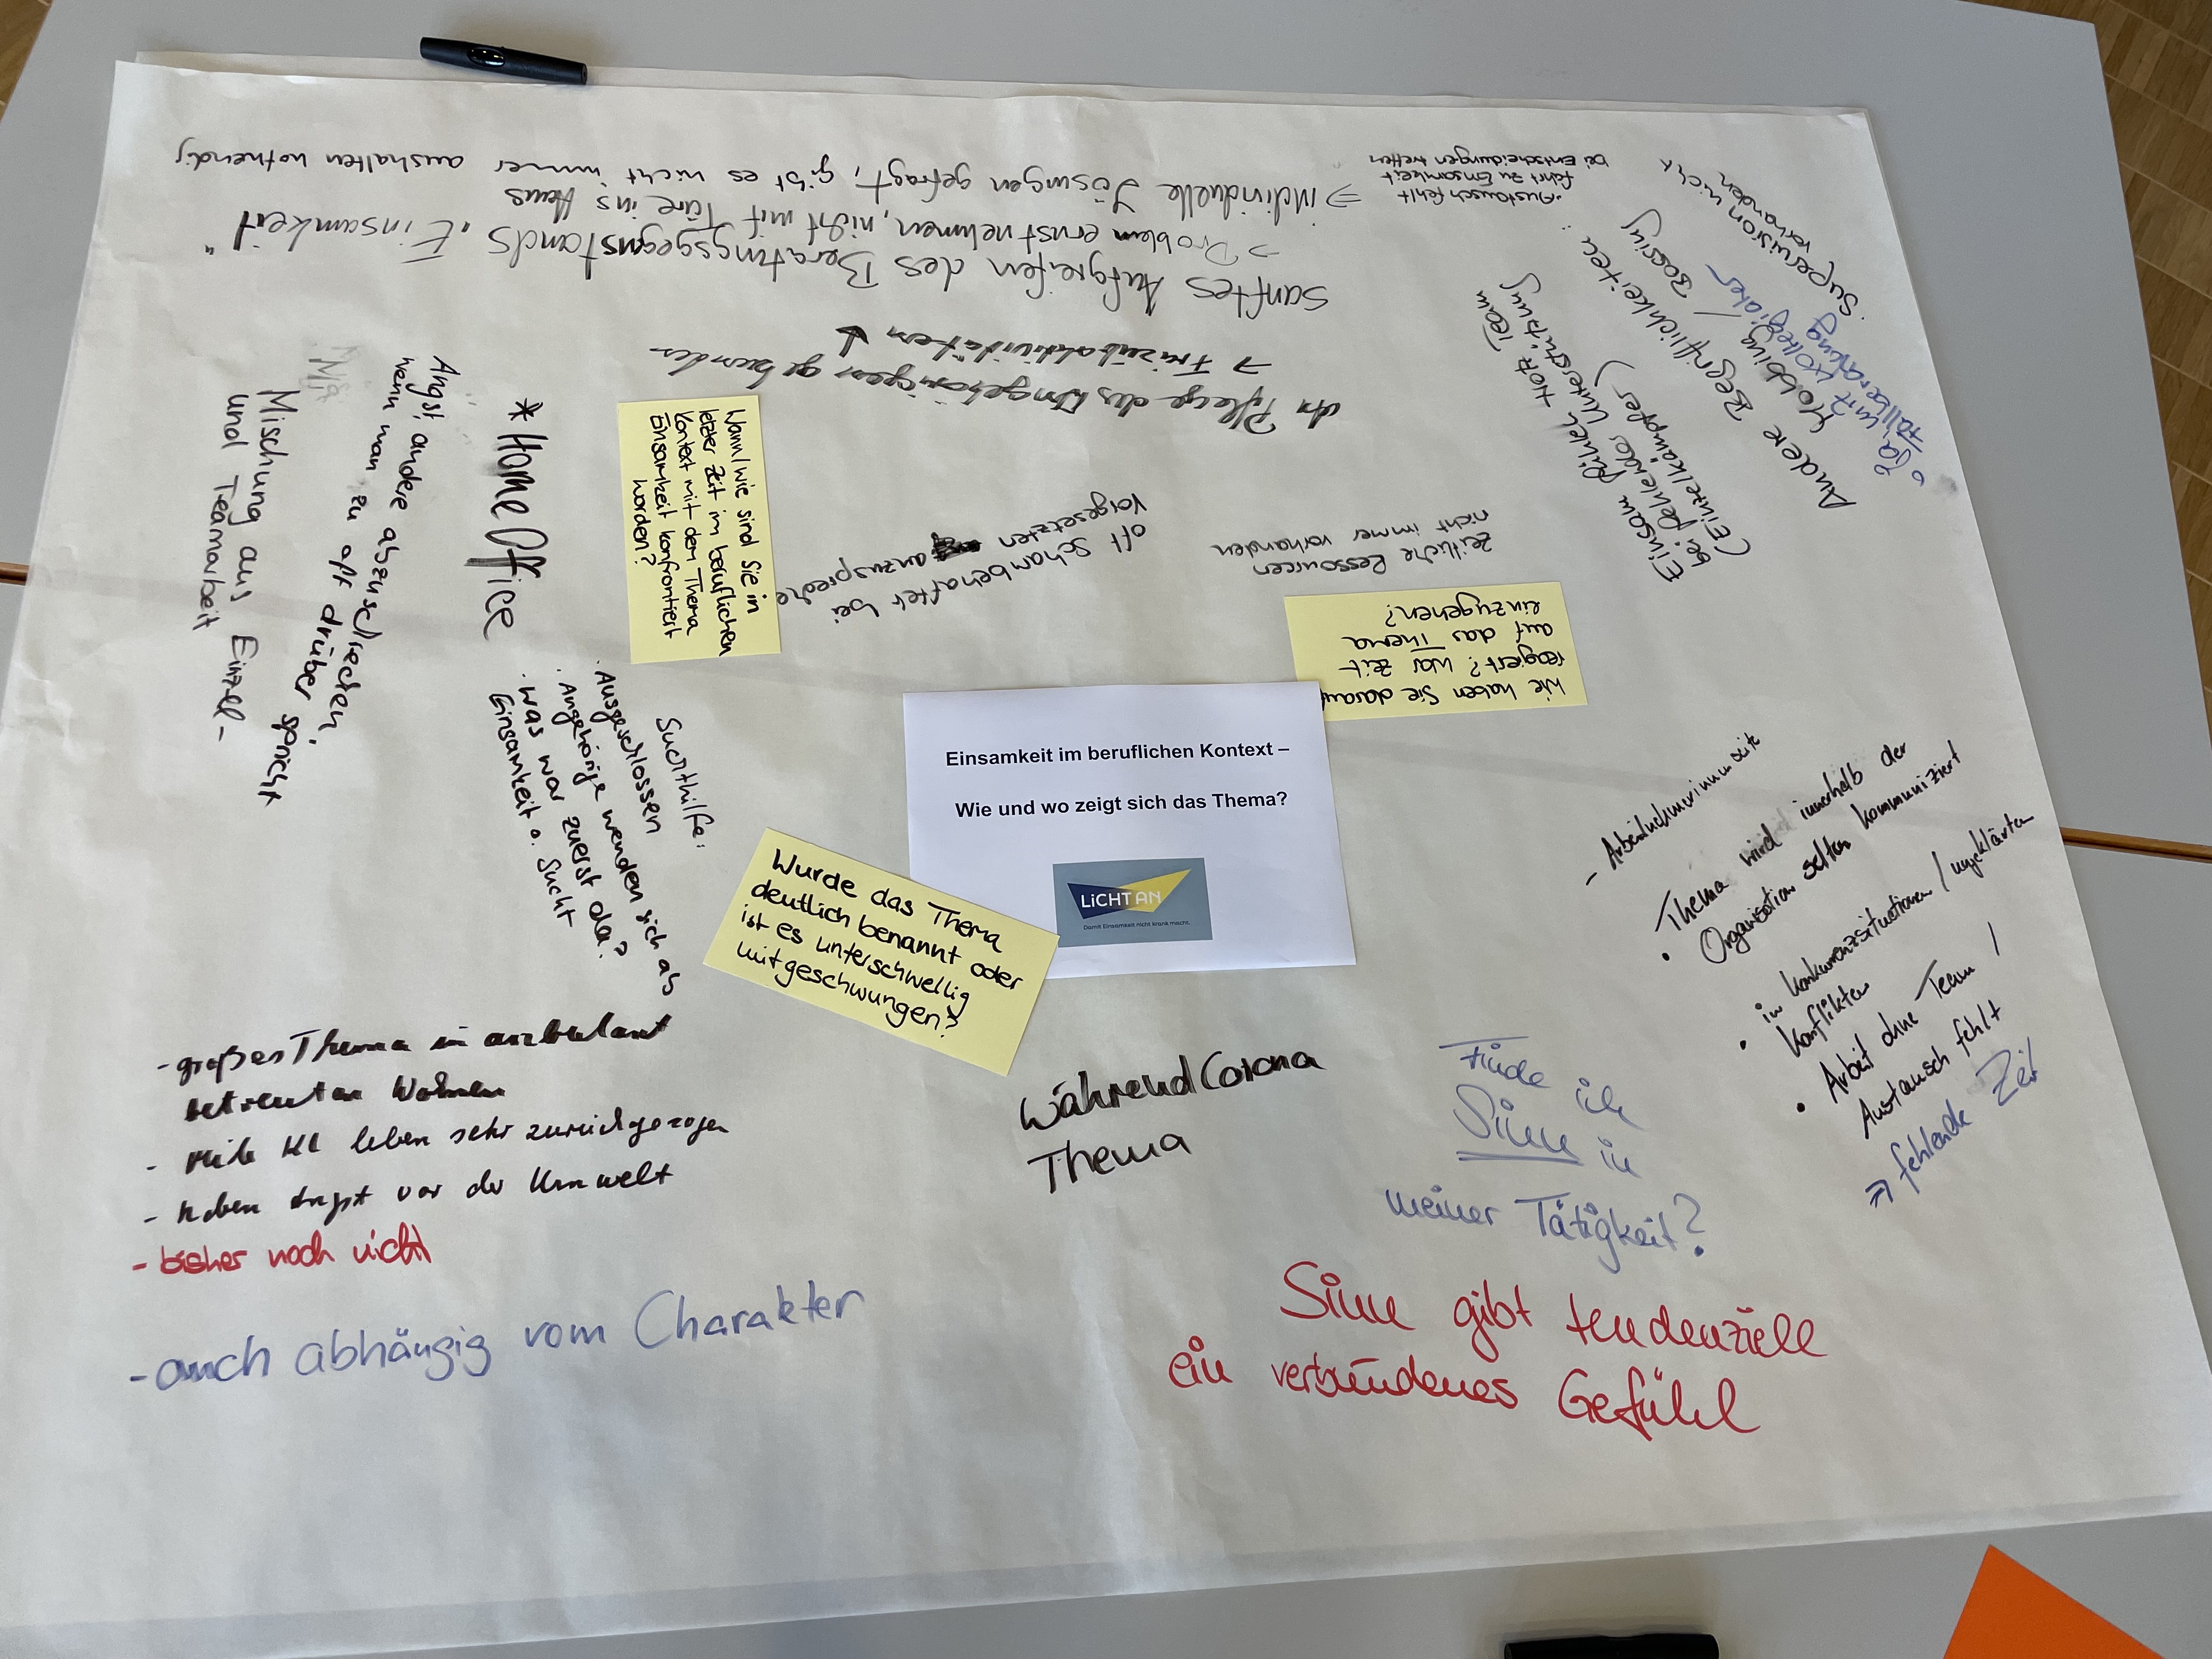 Einsamkeit im beruflichen Kontext –
Wie und wo zeigt sich das Thema?
LiCHT AN
Damit Einsamkeit nicht krank macht.
Wann/wie sind Sie in
letzter Zeit im beruflichen
Kontext mit dem Thema
Einsamkeit konfrontiert
worden?
Wie haben Sie darauf
reagiert? War Zeit
auf das Thema
einzugehen?
Wurde das Thema
deutlich benannt oder
ist es unterschwellig
mitgeschwungen?
sanftes Aufgreifen des Beratungsgegenstands „Einsamkeit"
→ Problem ernstnehmen, nicht mit Türe ins Haus
⇒ individuelle Lösungen gefragt, gibt es nicht immer aushalten notwendig
. Austausch fehlt
führt zu Einsamkeit
bei Entscheidungen treffen
. Supervision nicht
vorhanden
o Ja und kollegiale
Fallberatung
Andere Begrifflichkeiten:
Mobbing / Bossing
Einsam fühlen trotz Team
bei fehlender Unterstützung
(Einzelkämpfer)
In Pflege des Angehörigen gebunden
→ Freizeitaktivitäten ↓
oft schambehafteter bei
Vorgesetzten anzuspreche
Zeitliche Ressourcen
nicht immer vorhanden
* Home Office
Angst andere abzuschrecken,
wenn man zu oft drüber spricht
Mischung aus Einzel-
und Teamarbeit
Suchthilfe:
. Ausgeschlossen
. Angehörige wenden sich ab
. was war zuerst da?
Einsamkeit o. Sucht
- großes Thema im ambulant
betreuten Wohnen
- viele Kl leben sehr zurückgezogen
- haben Angst vor der Umwelt
- bisher noch nicht
- auch abhängig vom Charakter
Während Corona
Thema
Finde ich
Sinn in
meiner Tätigkeit?
Sinn gibt tendenziell
ein verbundenes Gefühl
- Arbeitnehmerinnenseite
• Thema wird innerhalb der
Organisation selten kommuniziert
• in Konkurrenzsituationen / ungeklärten
Konflikten
• Arbeit ohne Team /
Austausch fehlt
⇒ fehlende Zeit